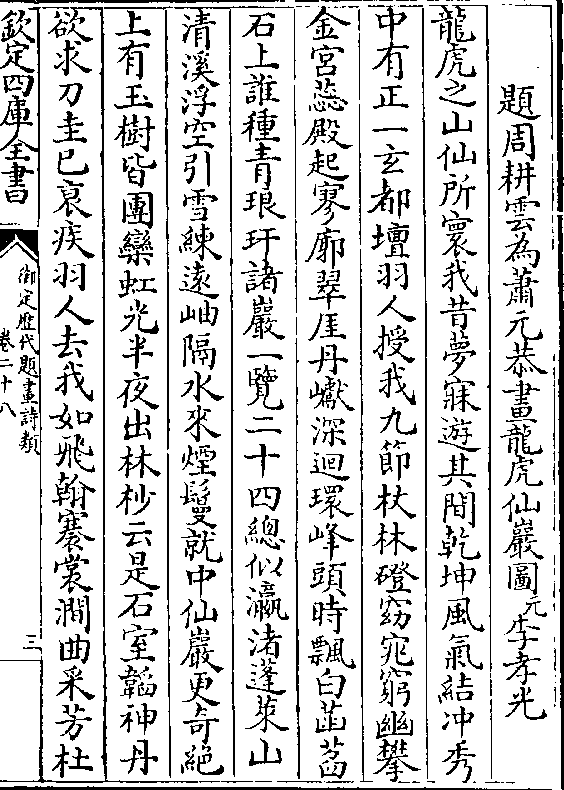 題周耕雲為蕭元恭畫龍虎仙巖圖 元 李孝光
龍虎之山仙所寰我昔夢寐遊其間乾坤風氣結冲秀
中有正一玄都壇羽人授我九節杖林磴窈窕窮幽攀
金宮蕊殿起寥廓翠厓丹巘深迴環峰頭時飄白菡萏
石上誰種青琅玕諸巖一覽二十四總似瀛渚蓬萊山
清溪浮空引雪練遠岫隔水來煙鬟就中仙巖更奇絕
上有玉樹皆團欒虹光半夜出林杪云是石室韜神丹
欲求刀圭已衰疾羽人去我如飛翰褰裳澗曲采芳杜
欽定四庫全書
御定歷代題畫詩類
卷二十八
三